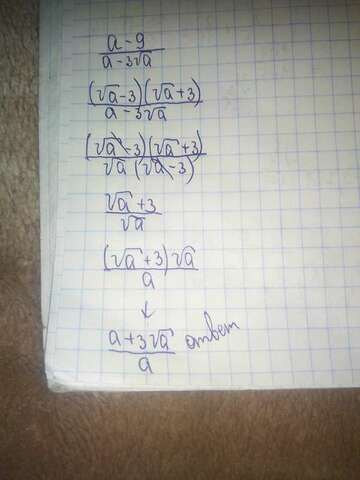 a-9/a-3√a
(√a-3)(√a+3)/a-3√a
(√a-3)(√a+3)/√a(√a-3)
√a+3/√a
(√a+3)√a/a
↓
a+3√a/a ответ